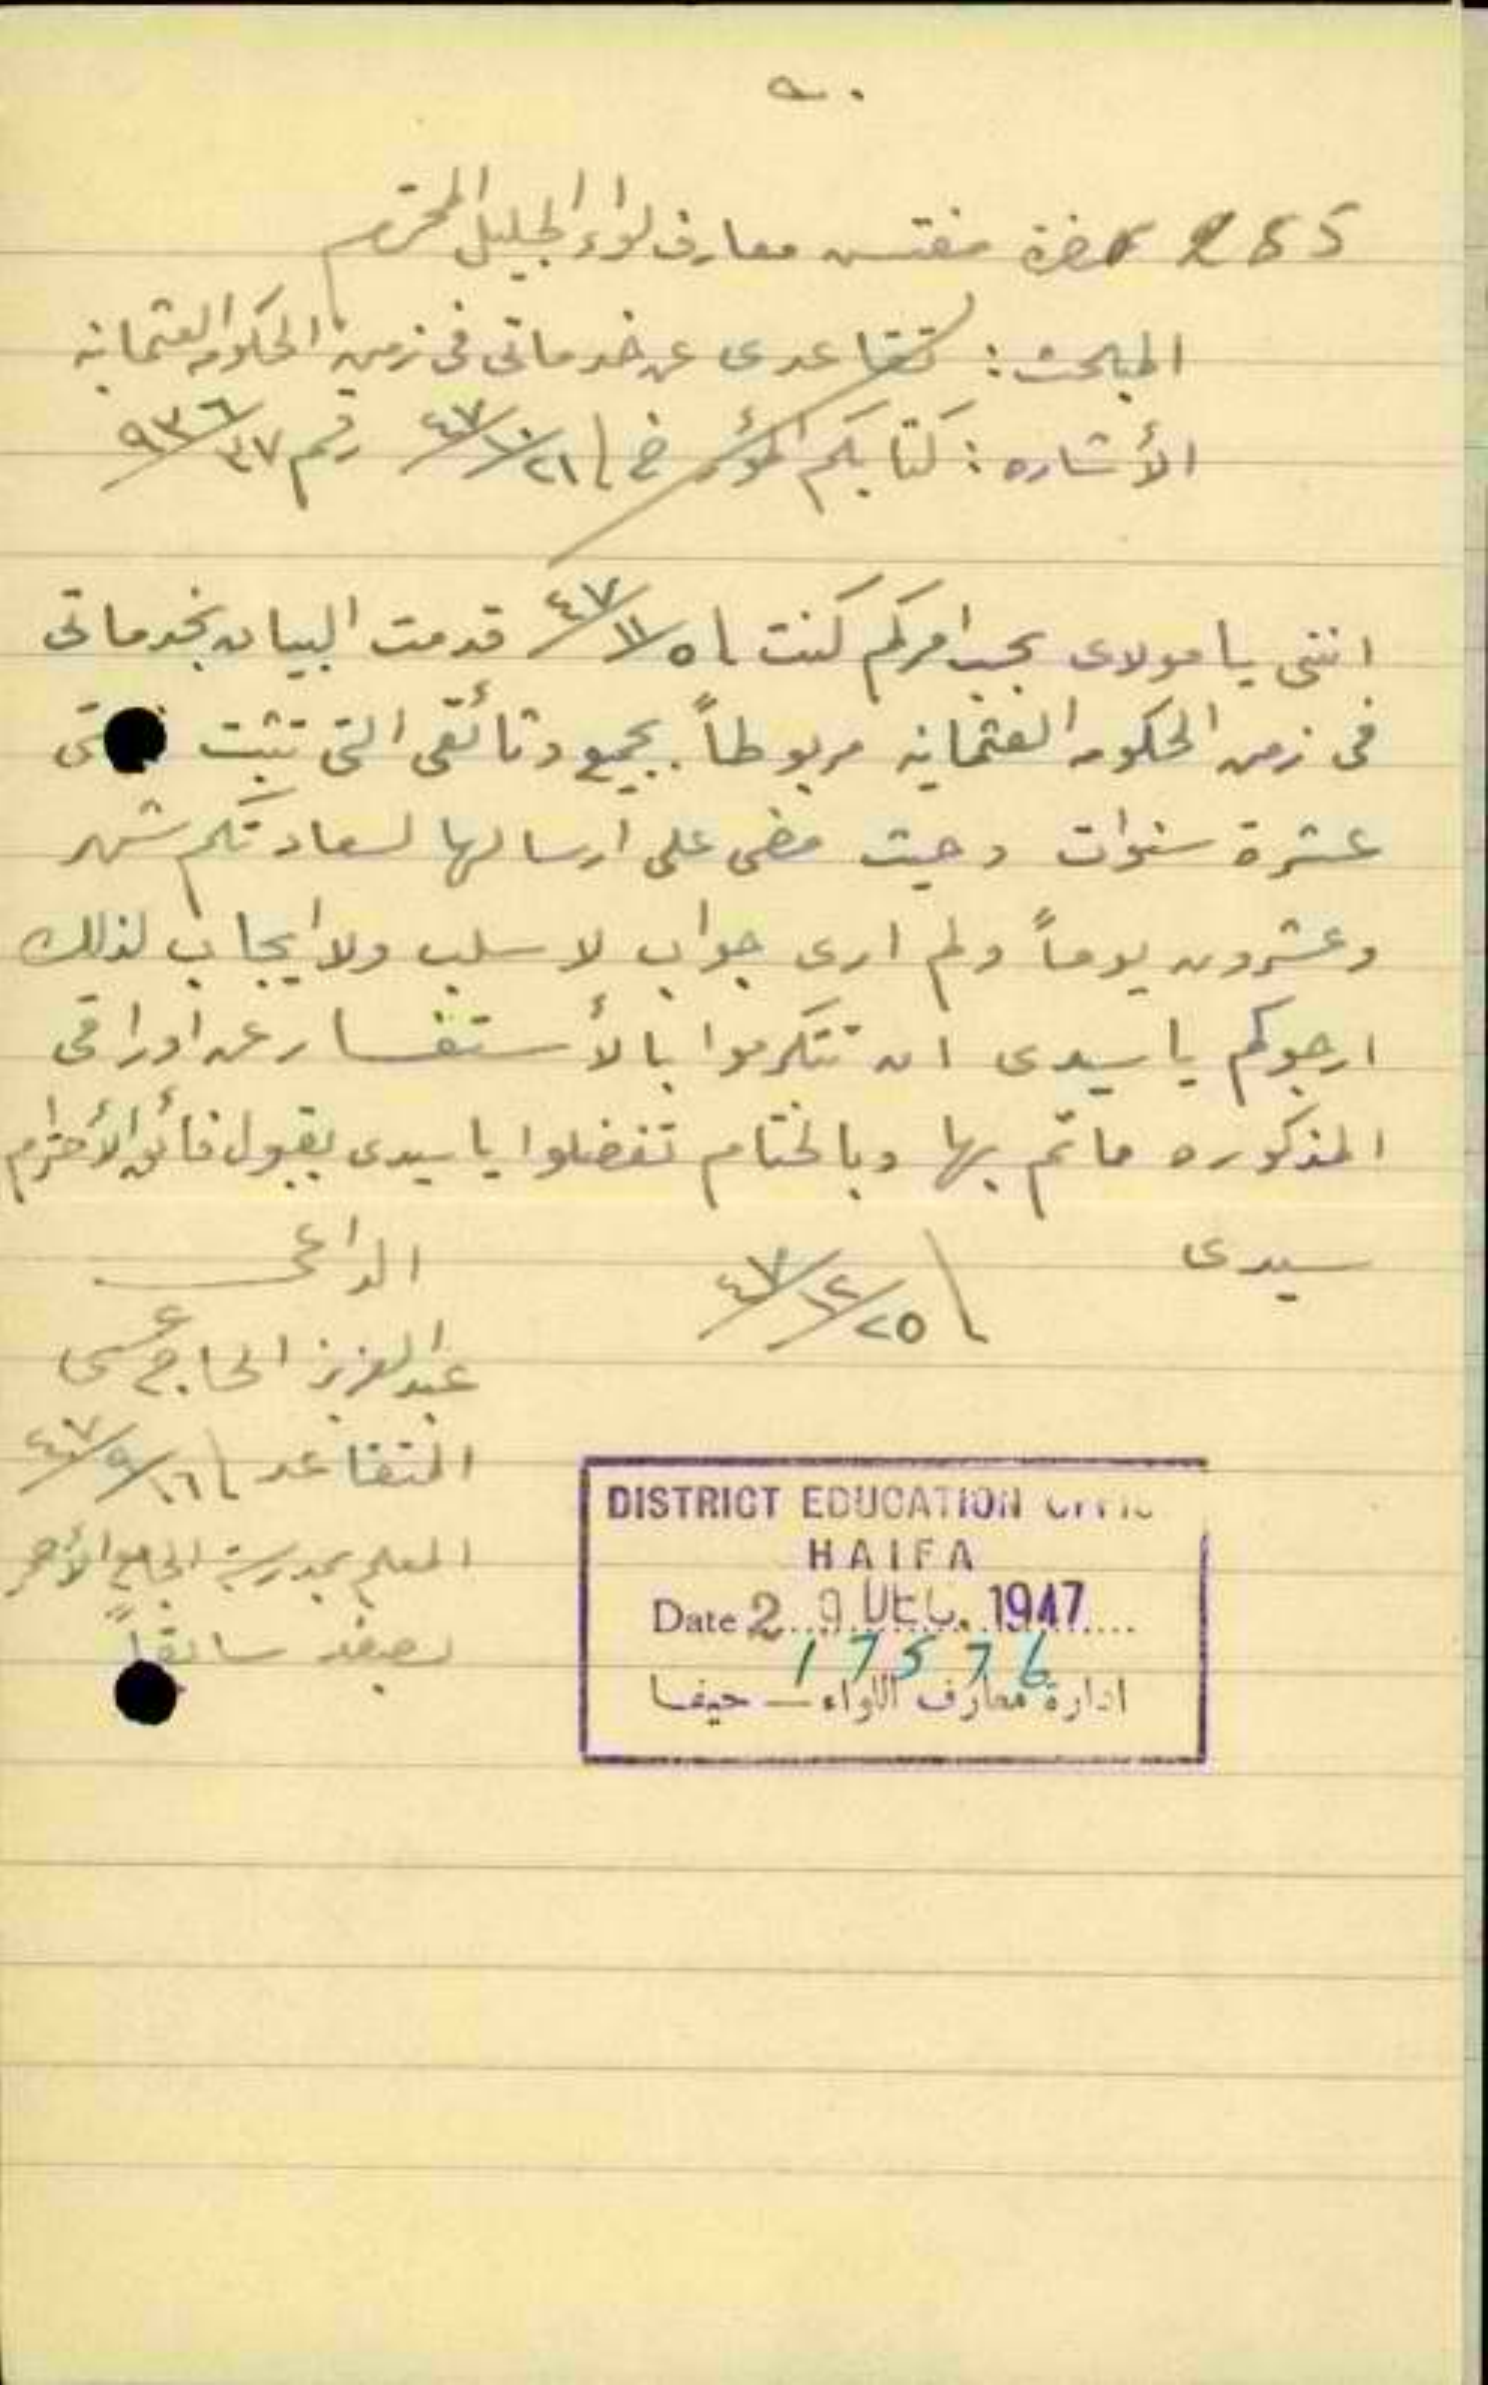 ٩٠
255 حضرة مفتش معارف لواء الجليل المحترم
المبحث: تقاعدى عن خدماتى فى زمن الحكومه العثمانيه
الأشاره: كتابكم المؤرخ ٢١/١٠/٤٧ رقم ٩٣٦/٣٧
اننى يا مولاى بحسب امركم كنت ٥/١١/٤٧ قدمت البيان بخدماتى
فى زمن الحكومه العثمانيه مربوطاً بجميع وثائقى التى تثبت
عشرة سنوات وحيث مضى على ارسالها لسعادتكم شهر
وعشرون يوماً ولم ارى جواب لا سلب ولا ايجاب لذلك
ارجوكم يا سيدى ان تتكرموا بالأستفسار عن اوراقى
المذكوره ماتم بها وبالختام تفضلوا يا سيدى بقبول فائق الأحترام
سيدى
٢٥/١٢/٤٧
الداعى
عبد العزيز الحاج عيسى
المتقاعد ١٦/٩/٤٧
المعلم بمدرسة الجامع الأحمر
بصفد سابقاً
DISTRICT EDUCATION
HAIFA
Date 29 DEC. 1947
17576
ادارة معارف اللواء — حيفا